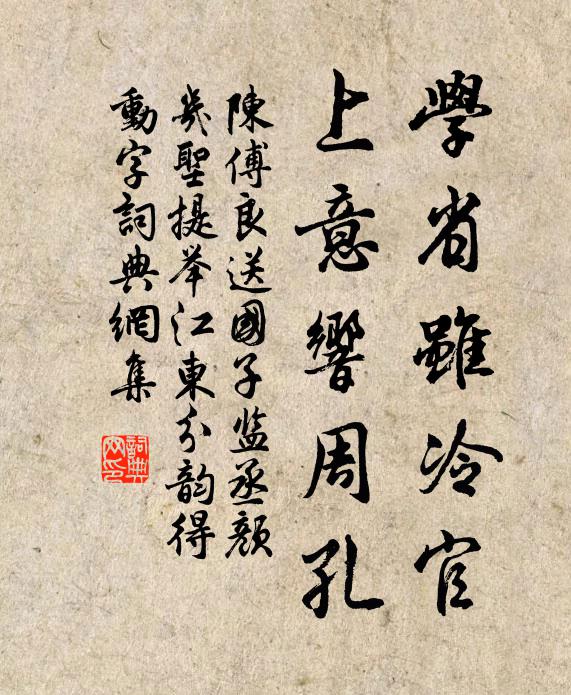 學省雖冷官
上意響周孔
陳傅良送國子监丞顏
幾聖提举江東分韵得
動字詞典網集
詞典
网印